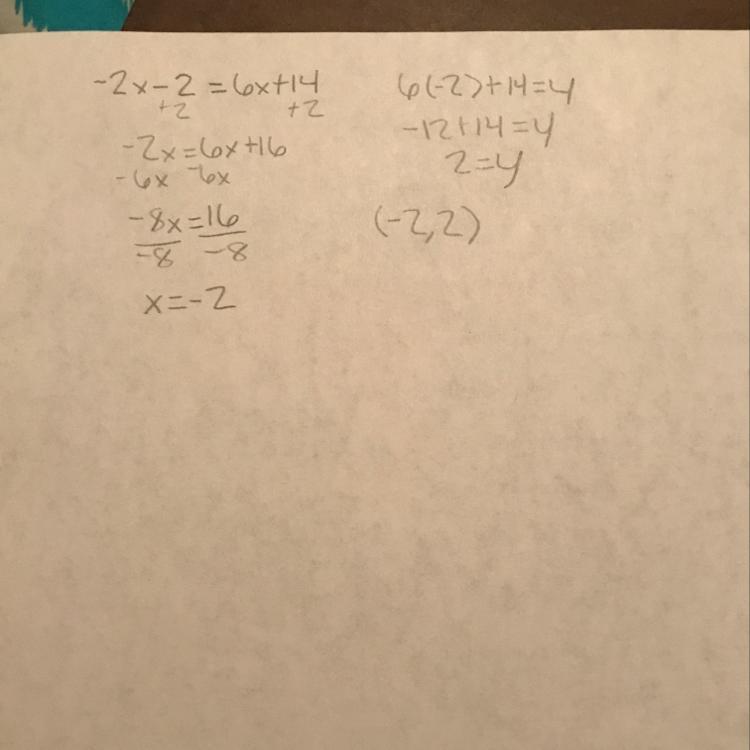 -2x-2=6x+14
+2 +2
-2x=6x+16
-6x -6x
-8x=16
-8 -8
x=-2
6(-2)+14=y
-12+14=y
2=y
(-2,2)